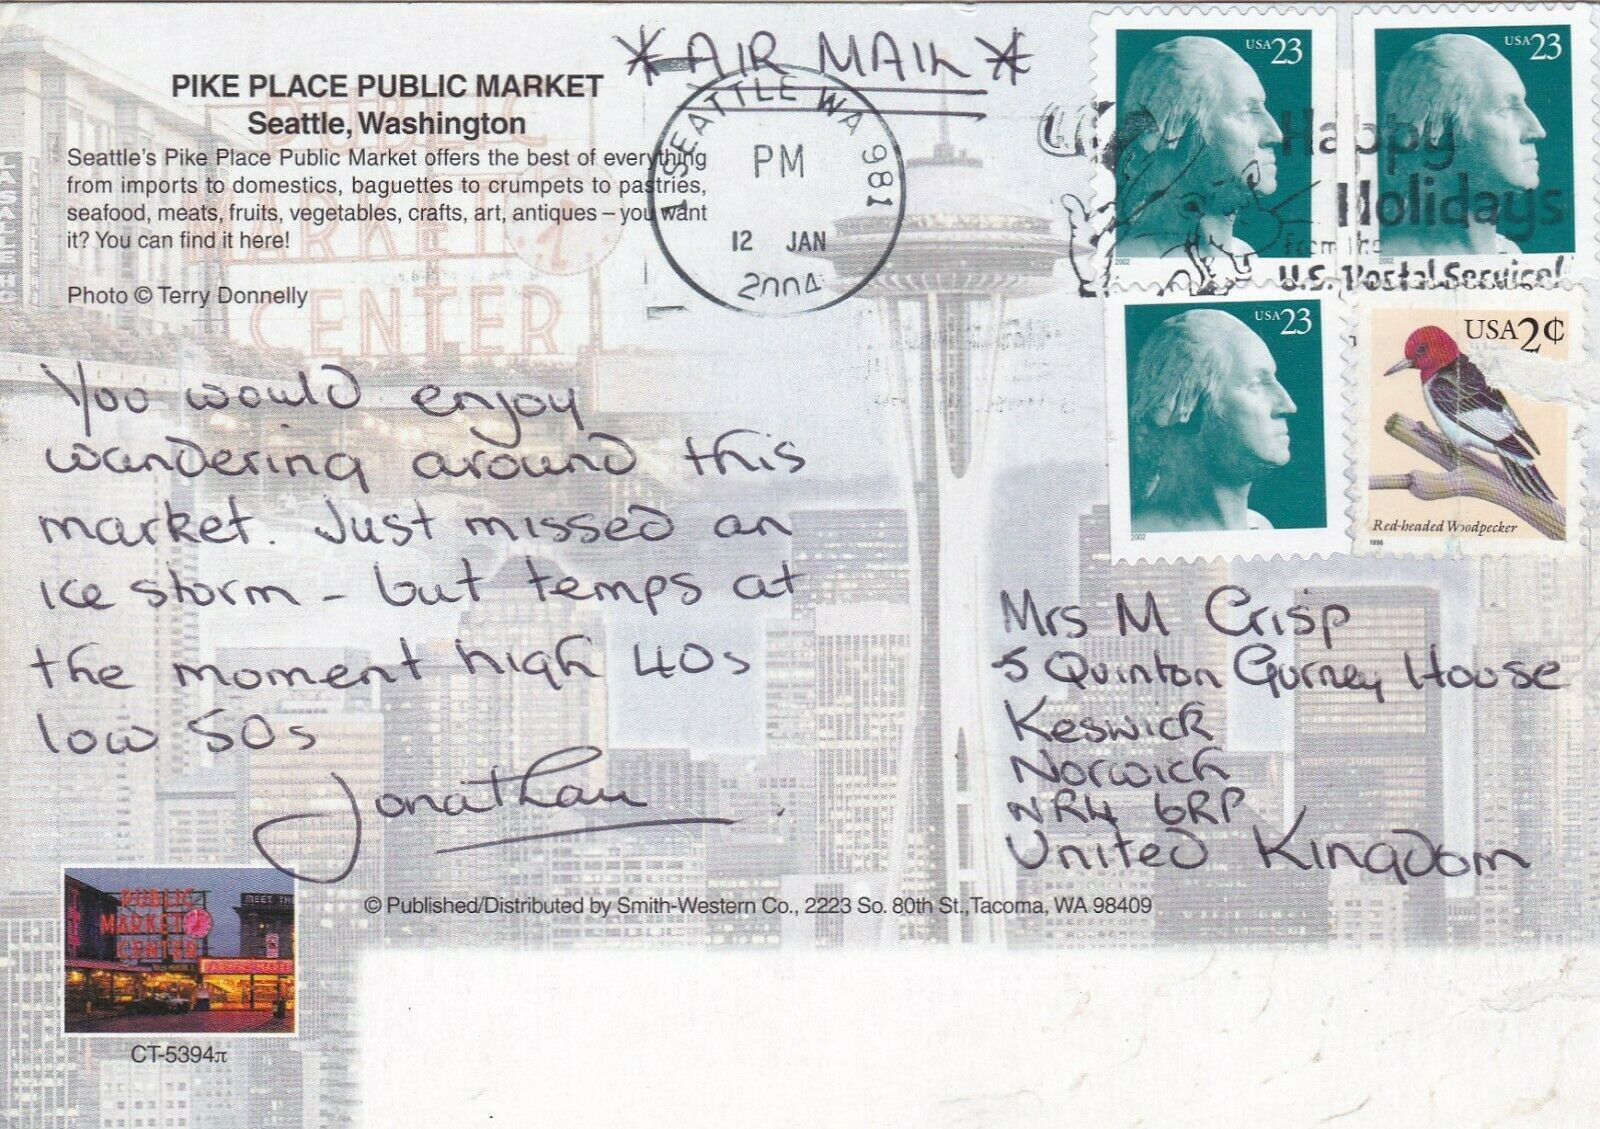 * AIR MAIL *
PIKE PLACE PUBLIC MARKET
Seattle, Washington
Seattle's Pike Place Public Market offers the best of everything
from imports to domestics, baguettes to crumpets to pastries,
seafood, meats, fruits, vegetables, crafts, art, antiques – you want
it? You can find it here!
Photo © Terry Donnelly
PUBLIC
MARKET
CENTER
SEATTLE WA 981
PM
12 JAN
2004
USA 23
2002
USA 23
Happy
Holidays
from the
U.S. Postal Service!
USA 23
2002
USA 2¢
Red-headed Woodpecker
1996
You would enjoy
wandering around this
market. Just missed an
ice storm - but temps at
the moment high 40s
low 50s
Jonathan
Mrs M Crisp
5 Quinton Gurney House
Keswick
Norwich
NR4 6RP
United Kingdom
© Published/Distributed by Smith-Western Co., 2223 So. 80th St., Tacoma, WA 98409
PUBLIC
MARKET
CENTER
MEET THE
CT-5394π